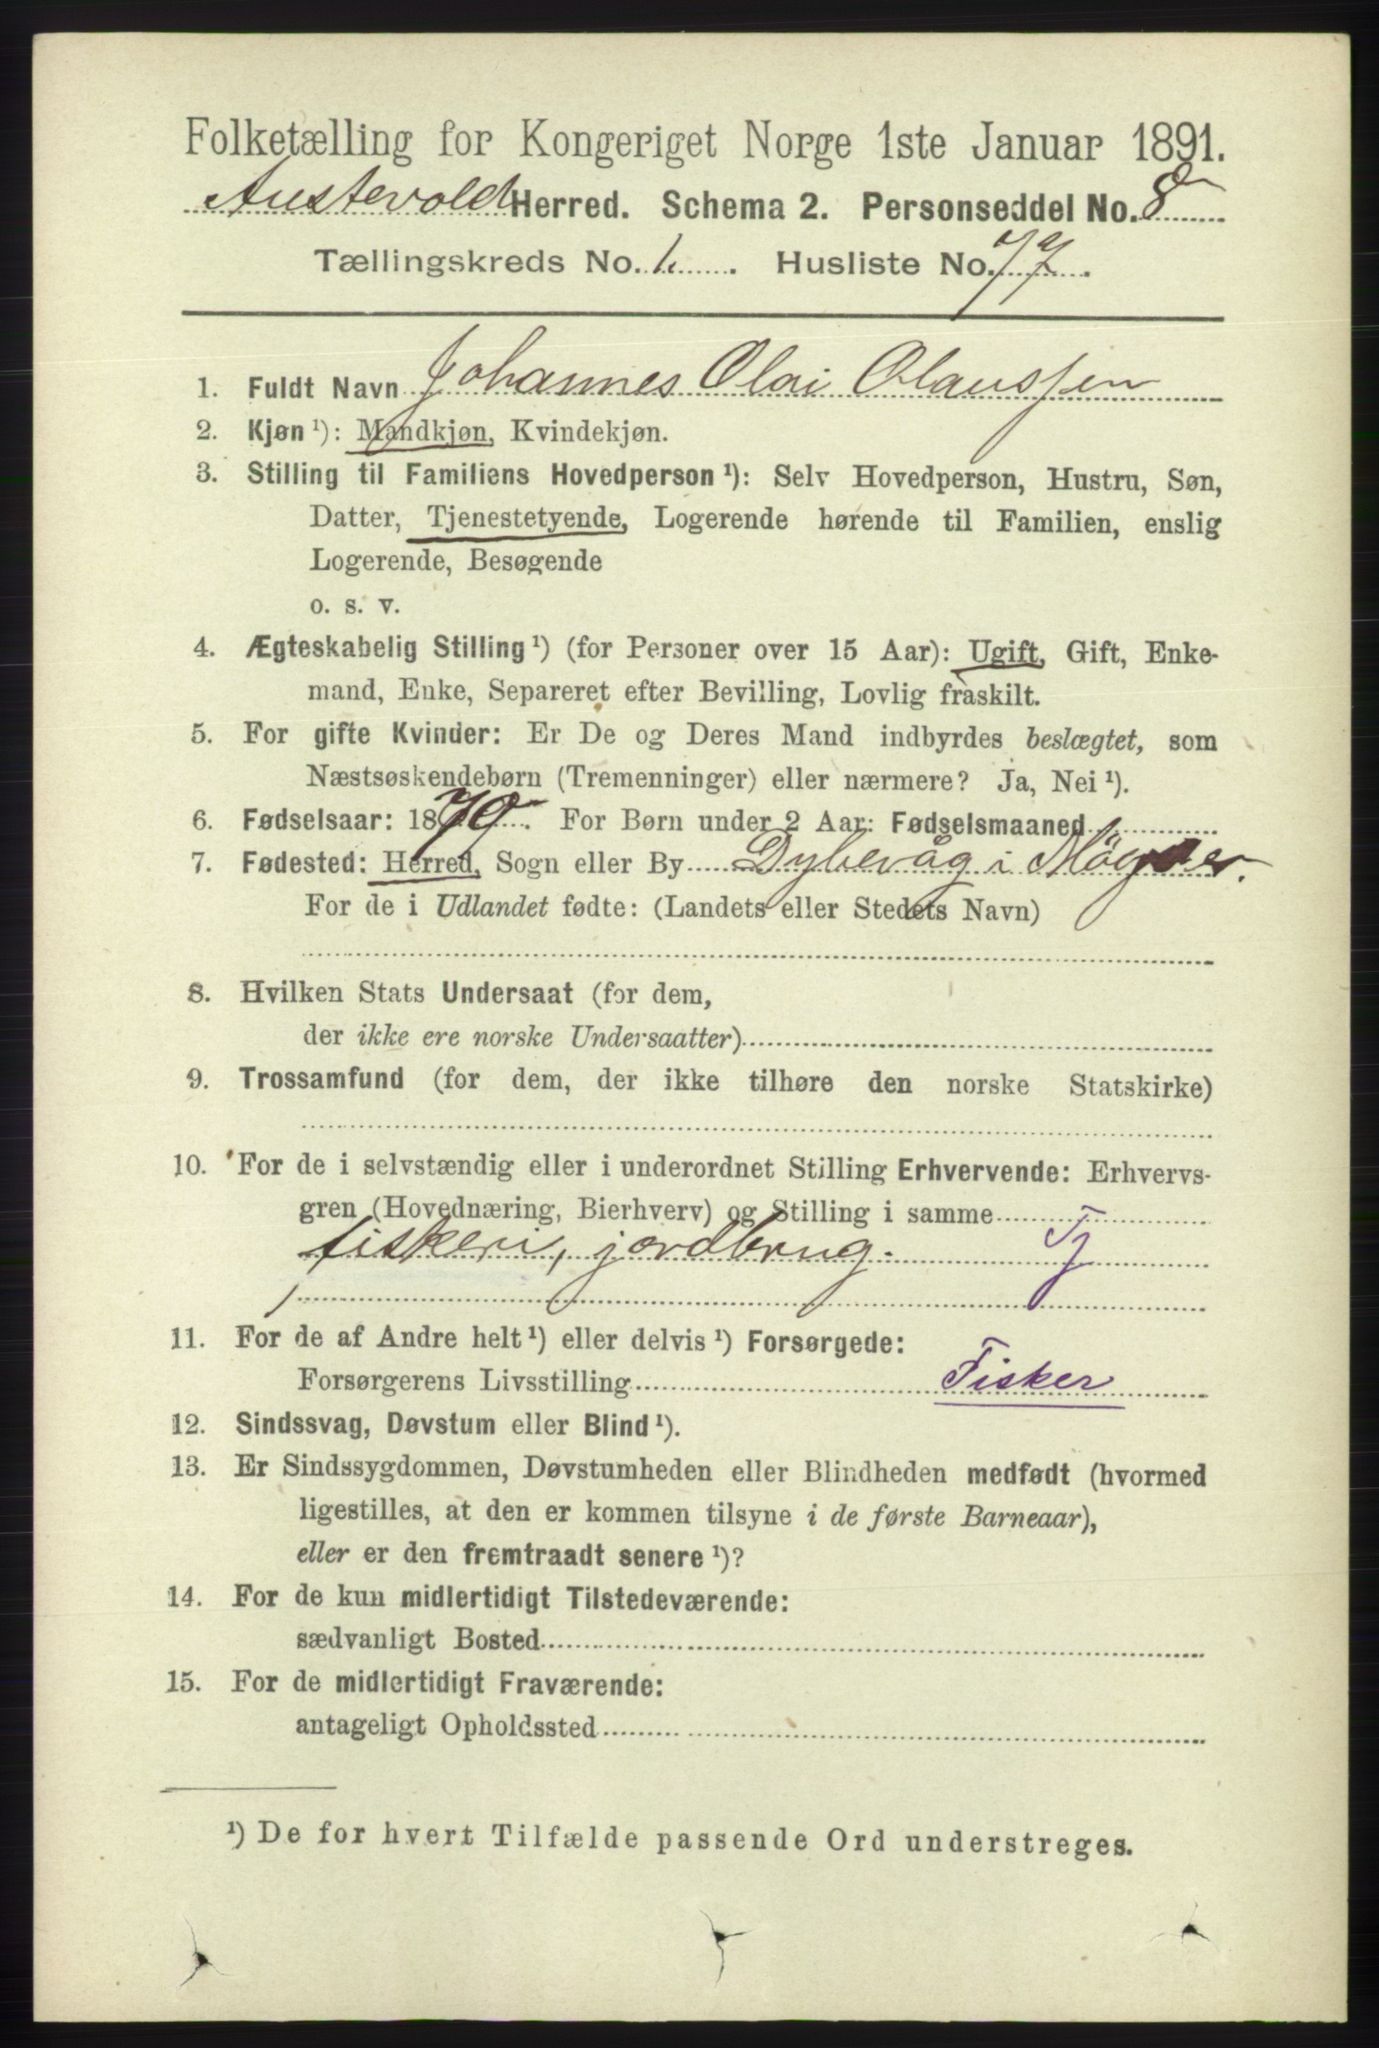 Folketælling for Kongeriget Norge 1ste Januar 1891.
Austevold Herred. Schema 2. Personseddel No. 8
Tællingskreds No. 1. Husliste No. 77.
1. Fuldt Navn Johannes Olai Olaussen
2. Kjøn ¹): Mandkjøn, Kvindekjøn.
3. Stilling til Familiens Hovedperson ¹): Selv Hovedperson, Hustru, Søn,
Datter, Tjenestetyende, Logerende hørende til Familien, enslig
Logerende, Besøgende
o. s. v.
4. Ægteskabelig Stilling ¹) (for Personer over 15 Aar): Ugift, Gift, Enke-
mand, Enke, Separeret efter Bevilling, Lovlig fraskilt.
5. For gifte Kvinder: Er De og Deres Mand indbyrdes beslægtet, som
Næstsøskendebørn (Tremenninger) eller nærmere? Ja, Nei ¹).
6. Fødselsaar: 1879. For Børn under 2 Aar: Fødselsmaaned
7. Fødested: Herred, Sogn eller By Dybevåg i Møgster.
For de i Udlandet fødte: (Landets eller Stedets Navn)
8. Hvilken Stats Undersaat (for dem,
der ikke ere norske Undersaatter)
9. Trossamfund (for dem, der ikke tilhøre den norske Statskirke)
10. For de i selvstændig eller i underordnet Stilling Erhvervende: Erhvervs-
gren (Hovednæring, Bierhverv) og Stilling i samme
fiskeri, jordbrug. Tj
11. For de af Andre helt ¹) eller delvis ¹) Forsørgede:
Forsørgerens Livsstilling Fisker
12. Sindssvag, Døvstum eller Blind ¹).
13. Er Sindssygdommen, Døvstumheden eller Blindheden medfødt (hvormed
ligestilles, at den er kommen tilsyne i de første Barneaar),
eller er den fremtraadt senere ¹)?
14. For de kun midlertidigt Tilstedeværende:
sædvanligt Bosted
15. For de midlertidigt Fraværende:
antageligt Opholdssted
¹) De for hvert Tilfælde passende Ord understreges.